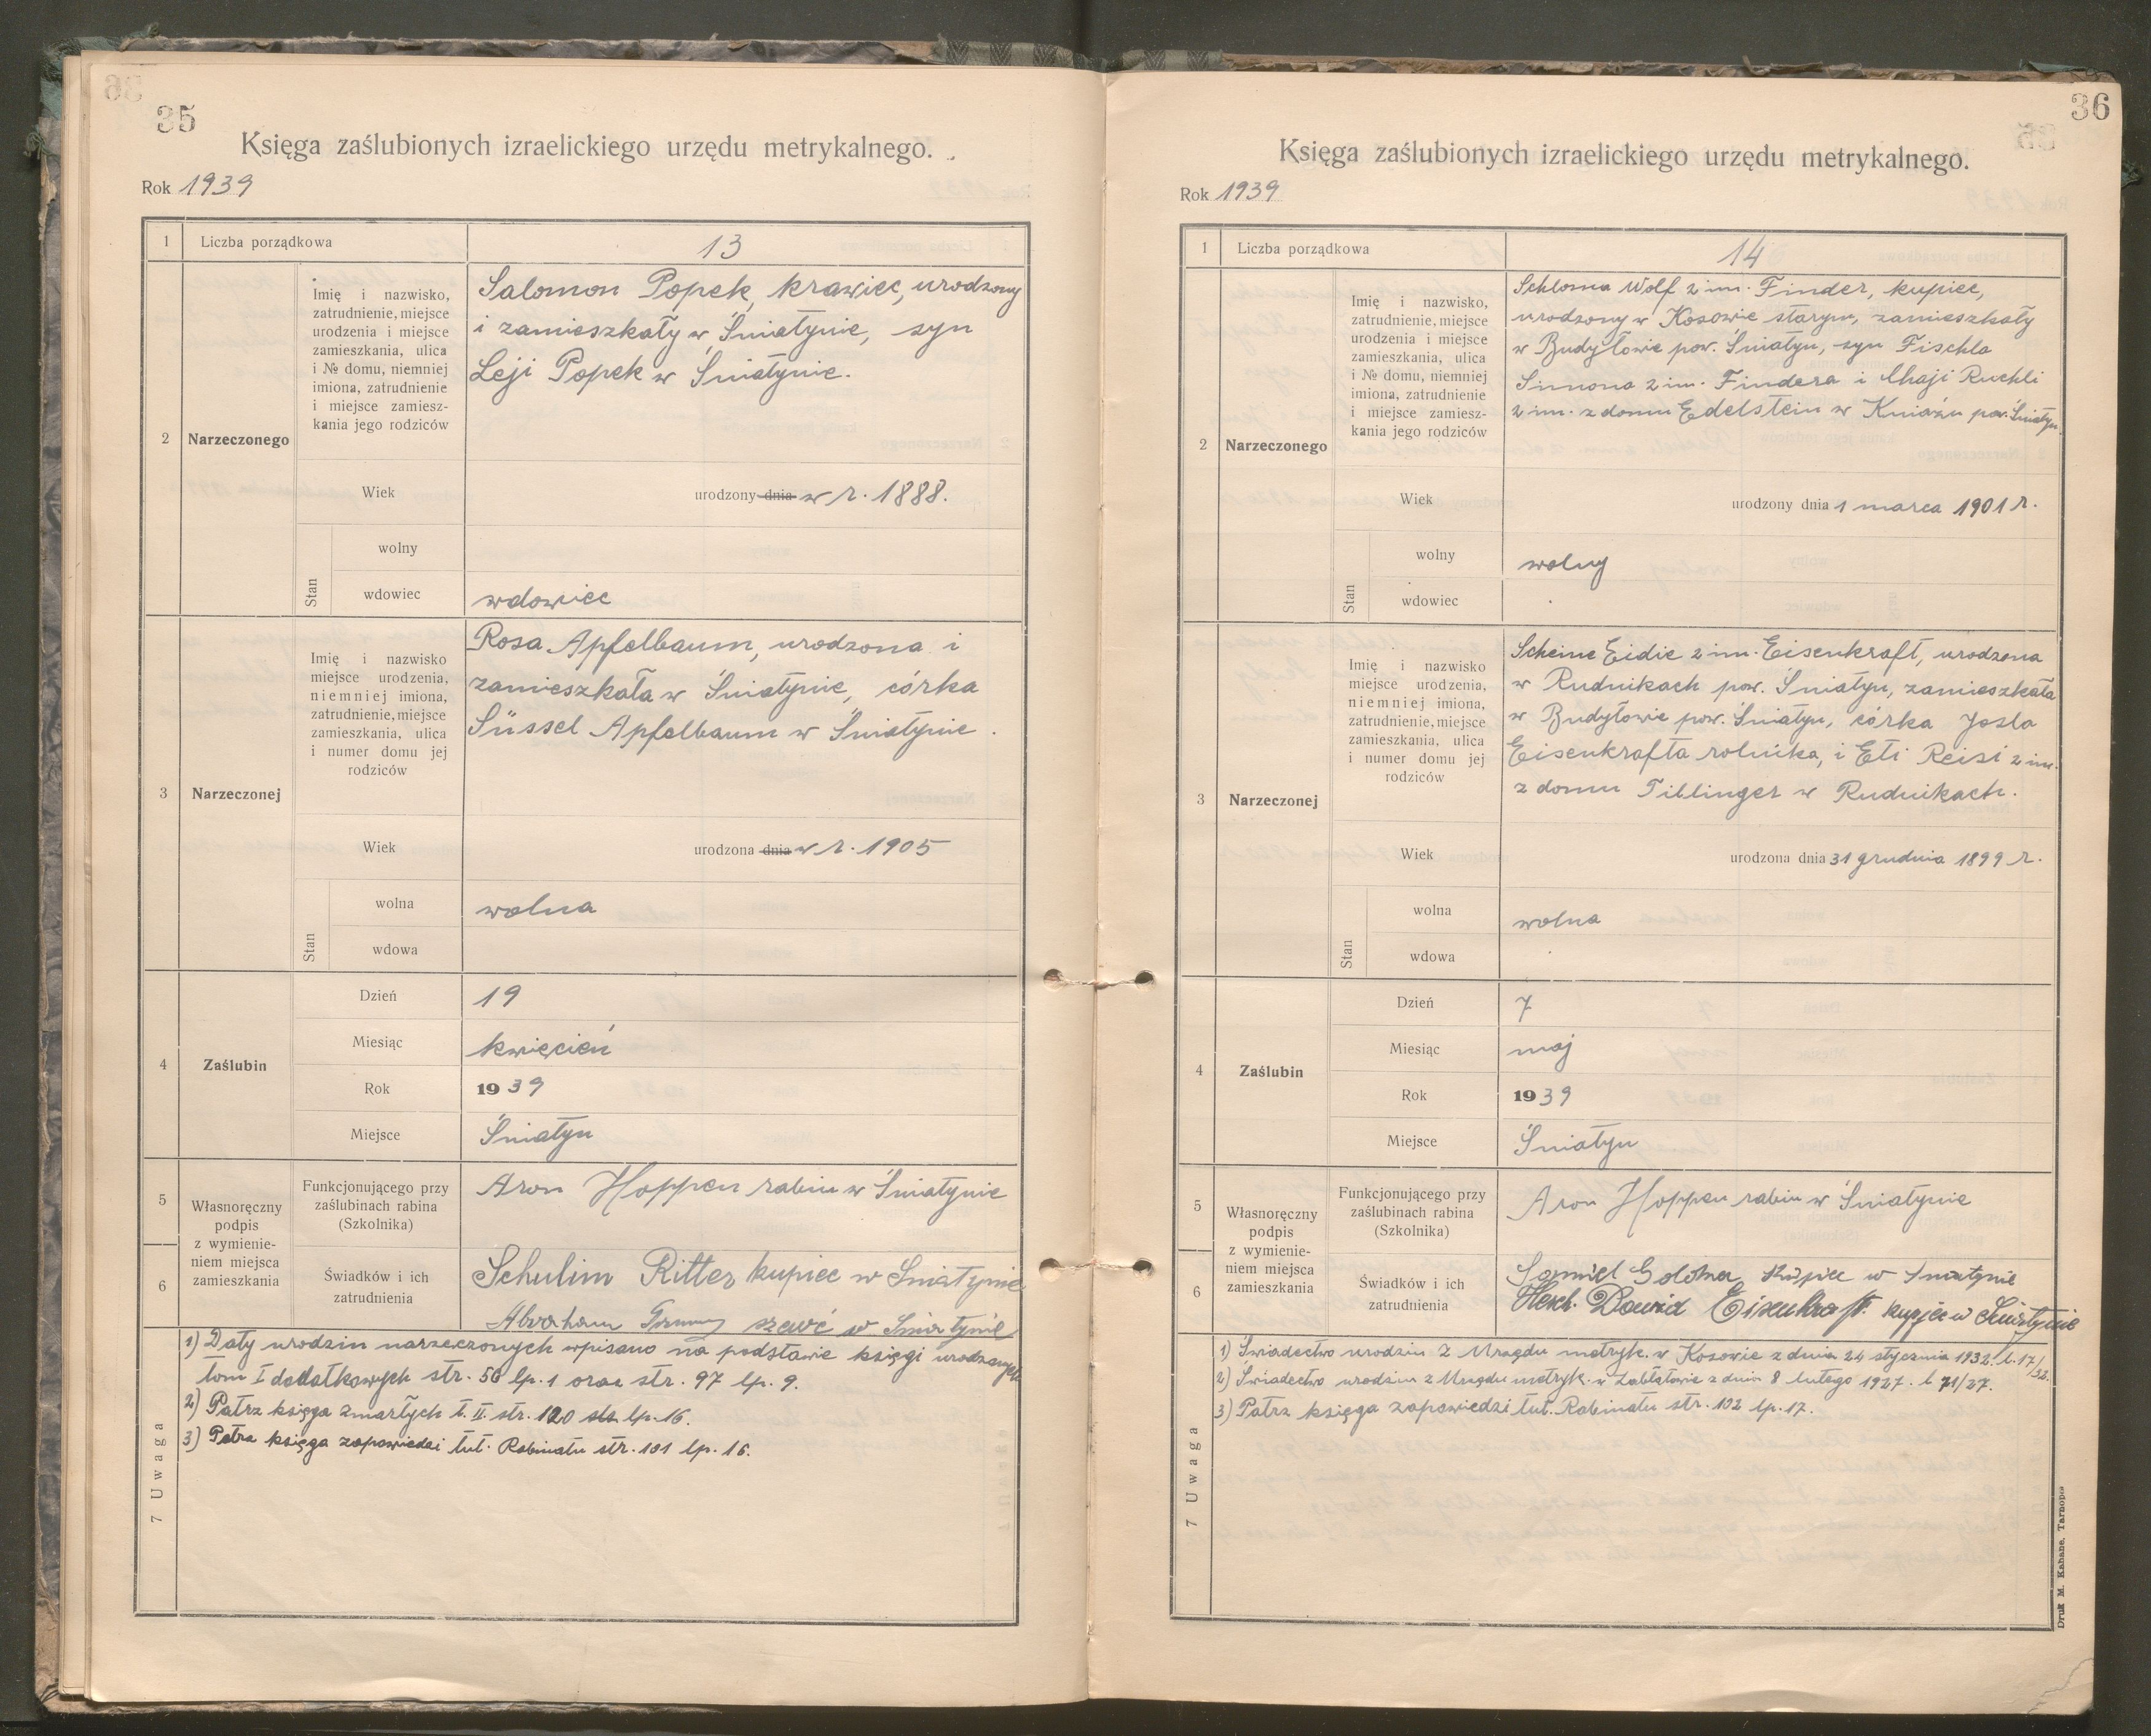 35
Księga zaślubionych izraelickiego urzędu metrykalnego.
Rok 1939
1 Liczba porządkowa 13
2 Narzeczonego
Imię i nazwisko,
zatrudnienie, miejsce
urodzenia i miejsce
zamieszkania, ulica
i № domu, niemniej
imiona, zatrudnienie
i miejsce zamiesz-
kania jego rodziców
Salomon Popek, krawiec, urodzony
i zamieszkały w Śniatynie, syn
Leji Popek w Śniatynie.
Wiek urodzony dnia w r. 1888.
Stan
wolny
wdowiec wdowiec
3 Narzeczonej
Imię i nazwisko
miejsce urodzenia,
niemniej imiona,
zatrudnienie, miejsce
zamieszkania, ulica
i numer domu jej
rodziców
Rosa Apfelbaum, urodzona i
zamieszkała w Śniatynie, córka
Süssel Apfelbaum w Śniatynie.
Wiek urodzona dnia w r. 1905
Stan
wolna wolna
wdowa
4 Zaślubin
Dzień 19
Miesiąc kwięcień
Rok 1939
Miejsce Śniatyn
5
6
Własnoręczny
podpis
z wymienie-
niem miejsca
zamieszkania
Funkcjonującego przy
zaślubinach rabina
(Szkolnika)
Aron Hoppen rabin w Śniatynie
Świadków i ich
zatrudnienia
Schulim Ritter kupiec w Śniatynie
Abraham szewć w Śniatynie
7 Uwaga
1) Daty urodzin narzeczonych wpisano na podstawie księgi urodzonych
tom I dodatkowych str. 56 lp. 1 oraz str. 97 lp. 9.
2) Patrz księga zmarłych t. II. str. 120 lp. 16.
3) Patrz księga zapowiedzi tut. Rabinatu str. 101 lp. 16.
36
Księga zaślubionych izraelickiego urzędu metrykalnego.
Rok 1939
1 Liczba porządkowa 14
2 Narzeczonego
Imię i nazwisko,
zatrudnienie, miejsce
urodzenia i miejsce
zamieszkania, ulica
i № domu, niemniej
imiona, zatrudnienie
i miejsce zamiesz-
kania jego rodziców
Schloma Wolf 2 im. Finder, kupiec,
urodzony w Kosowie starym, zamieszkały
w Budyłowie pow. Śniatyn, syn Fischla
Simona 2 im. Findera i Chaji Ruchli
2 im. z domu Edelstein w Kniażu pow. Śniatyn.
Wiek urodzony dnia 1 marca 1901 r.
Stan
wolny wolny
wdowiec
3 Narzeczonej
Imię i nazwisko
miejsce urodzenia,
niemniej imiona,
zatrudnienie, miejsce
zamieszkania, ulica
i numer domu jej
rodziców
Scheine Eidie 2 im. Eisenkraft, urodzona
w Rudnikach pow. Śniatyn, zamieszkała
w Budyłowie pow. Śniatyn, córka Josla
Eisenkrafta rolnika, i Eti Reisi 2 im.
z domu Tillinger w Rudnikach.
Wiek urodzona dnia 31 grudnia 1899 r.
Stan
wolna wolna
wdowa
4 Zaślubin
Dzień 7
Miesiąc maj
Rok 1939
Miejsce Śniatyn
5
6
Własnoręczny
podpis
z wymienie-
niem miejsca
zamieszkania
Funkcjonującego przy
zaślubinach rabina
(Szkolnika)
Aron Hoppen rabin w Śniatynie
Świadków i ich
zatrudnienia
kupiec w Śniatynie
Hersch Dawid Eisenkraft kupjec w Śniatynie
7 Uwaga
1) Świadectwo urodzin z Urzędu metryk. w Kosowie z dnia 24 stycznia 1932. l. 17/32.
2) Świadectwo urodzin z Urzędu metryk. w Zabłotowie z dnia 8 lutego 1927. l 71/27.
3) Patrz księga zapowiedzi tut. Rabinatu str. 102 lp. 17.
Druk M. Kahane, Tarnopol